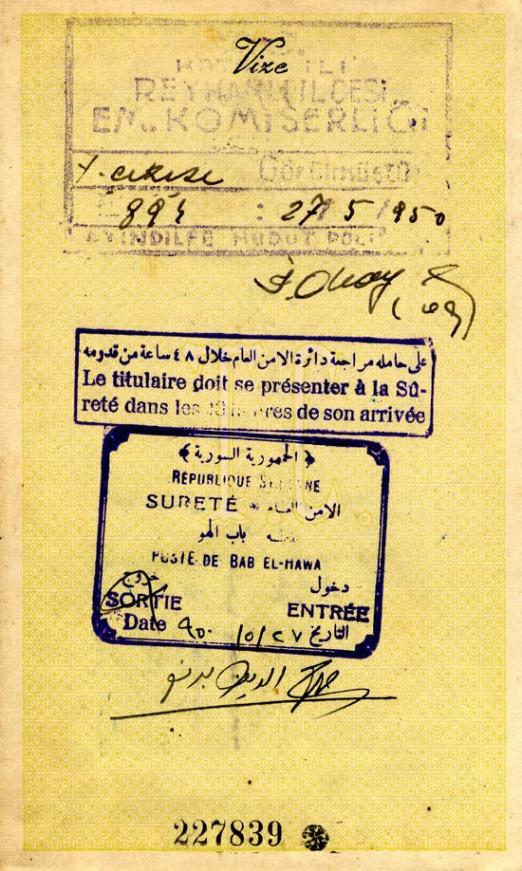 Vize
REYHANLI İLÇESİ
EM. KOMİSERLİĞİ
Görülmüştür
894 : 27/5/1950
HUDUT POLİ
على حامله مراجعة دائرة الامن العام خلال ٤٨ ساعة من قدومه
Le titulaire doit se présenter à la Sû-
reté dans les heures de son arrivée
﴿ الجمهورية السورية ﴾
RÉPUBLIQUE
SURETÉ * الامن العام
باب الهو
POSTE DE BAB EL-HAWA
خروج دخول
SORTIE ENTRÉE
Date ٩٥٠/٥/٢٧ التاريخ
صلاح الدين
227839